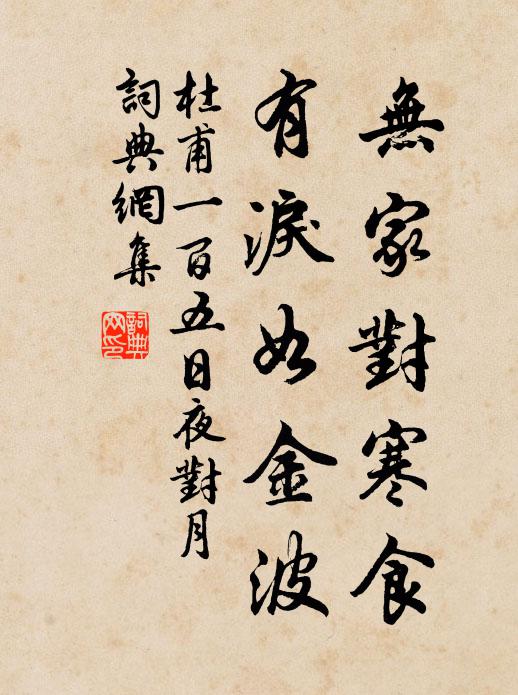 無家對寒食
有淚如金波
杜甫一百五日夜對月
詞典網集
詞典網印